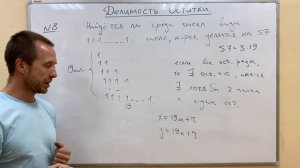 Делимость и остатки
N8
Найдется ли среди чисел вида
111.....1 число, к-рое делится на 57
57=3·19
1
11
111
1111
111.....1
19
если все ост. разн.
то ∃ ост.=0, иначе
∃ хотя бы 2 числа
с один. ост.
x=19k+r